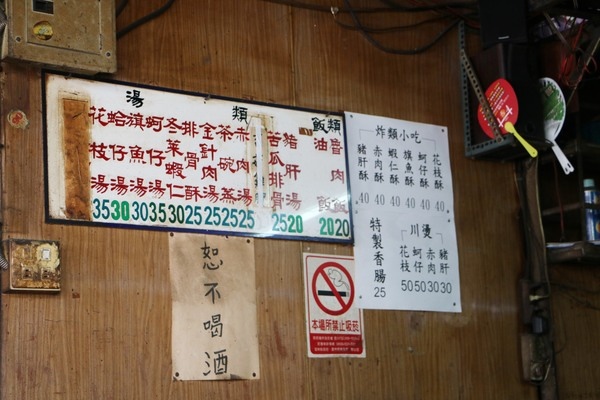 湯類
花枝湯 35
蛤仔湯 30
旗魚湯 30
蚵仔湯 35
冬菜蝦仁 30
排骨酥 25
金針肉湯 25
茶碗蒸 25
赤肉湯 25
苦瓜排骨 25
豬肝湯 20
飯類
油飯 20
魯肉飯 20
炸類小吃
豬肝酥 40
赤肉酥 40
蝦仁酥 40
旗魚酥 40
蚵仔酥 40
花枝酥 40
特製香腸 25
川燙
花枝 50
蚵仔 50
赤肉 30
豬肝 30
恕不喝酒
本場所禁止吸菸